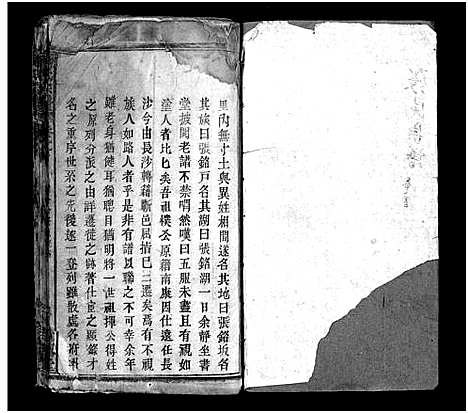 里內無寸土與異姓相間遂名其地曰張銘坂名
其族曰張銘戶名其湖曰張銘湖一日余靜坐書
堂披閱老譜不禁喟然嘆曰五服未盡且有視如
塗人者比比矣吾祖樸公原籍南康因仕遠任長
沙今由長沙轉籍蘄邑屈指已三遷矣焉有不視
族人如路人者乎是非有譜以聯之不可幸余年
雖老身猶健耳猶聰目猶明將一世祖揮公得姓
之原列分派之由詳遷徙之跡著仕宦之顯錄才
名之重序世系之先後逐一登列雖散處各府州